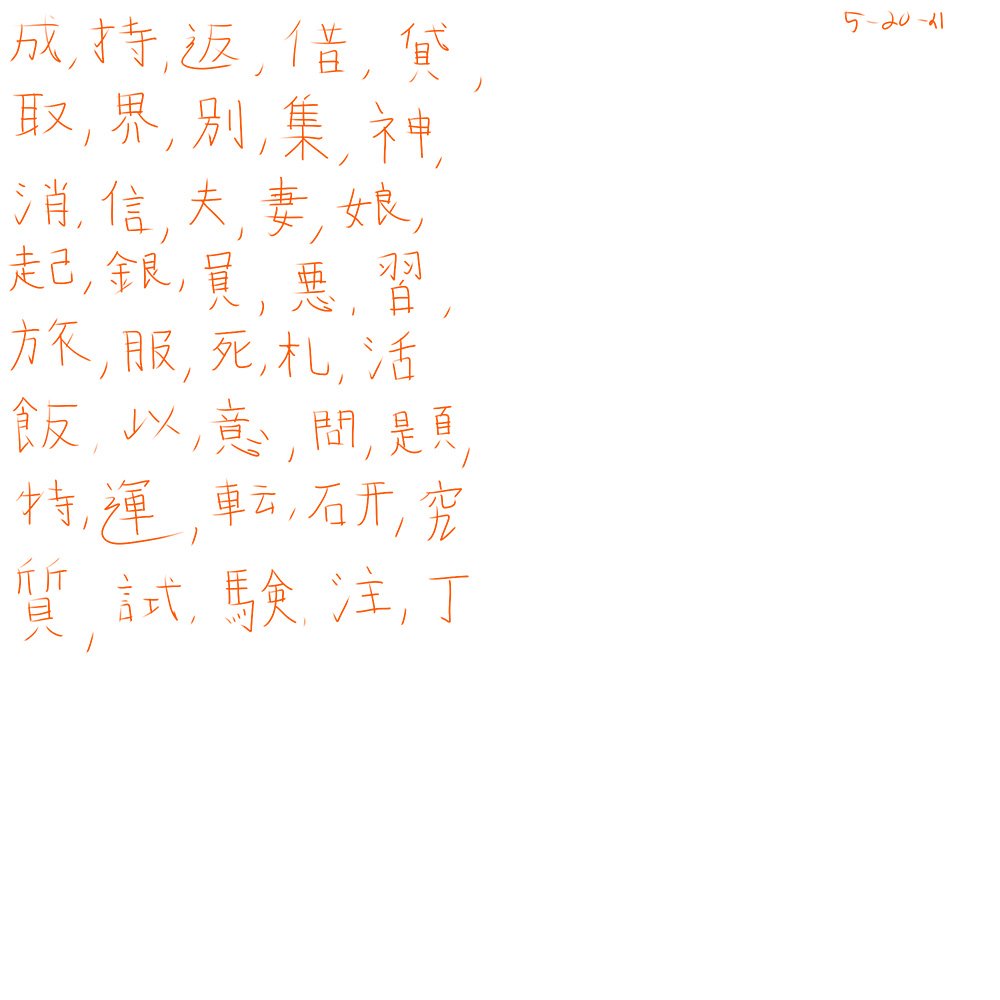 5-20-21
成, 持, 返, 借, 貸,
取, 界, 別, 集, 神,
消, 信, 夫, 妻, 娘,
起, 銀, 員, 悪, 習,
旅, 服, 死, 札, 活
飯, 以, 意, 問, 題,
特, 運, 転, 研, 究
質, 試, 験, 注, 丁